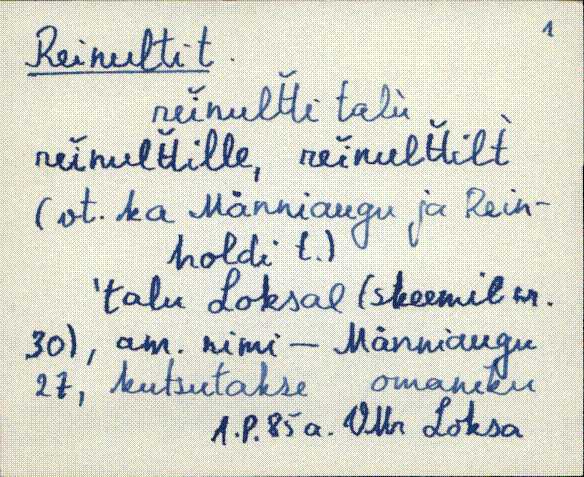 1
Reinulti t.
reinulťťi talù
reinulťťille, reinulťťilt̀
(vt. ka Männiaugu ja Rein-
holdi t.)
'talu Loksal (skeemil nr.
30), am. nimi — Männiaugu
27, kutsutakse omaniku
A.P. 85 a. VMr Loksa